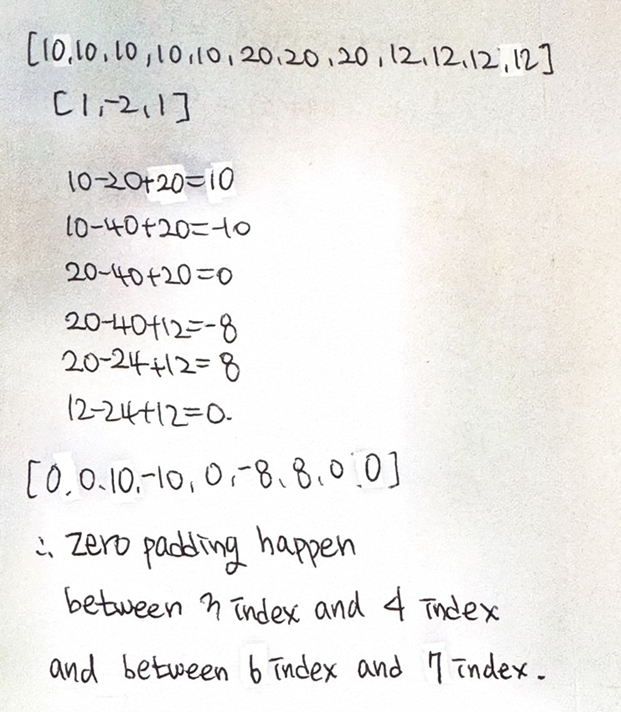 [10,10,10,10,10,20,20,20,12,12,12,12]
[1,-2,1]
10-20+20=10
10-40+20=-10
20-40+20=0
20-40+12=-8
20-24+12=8
12-24+12=0.
[0,0,10,-10,0,-8,8,0,0]
∴ zero padding happen
between 3 index and 4 index
and between 6 index and 7 index.